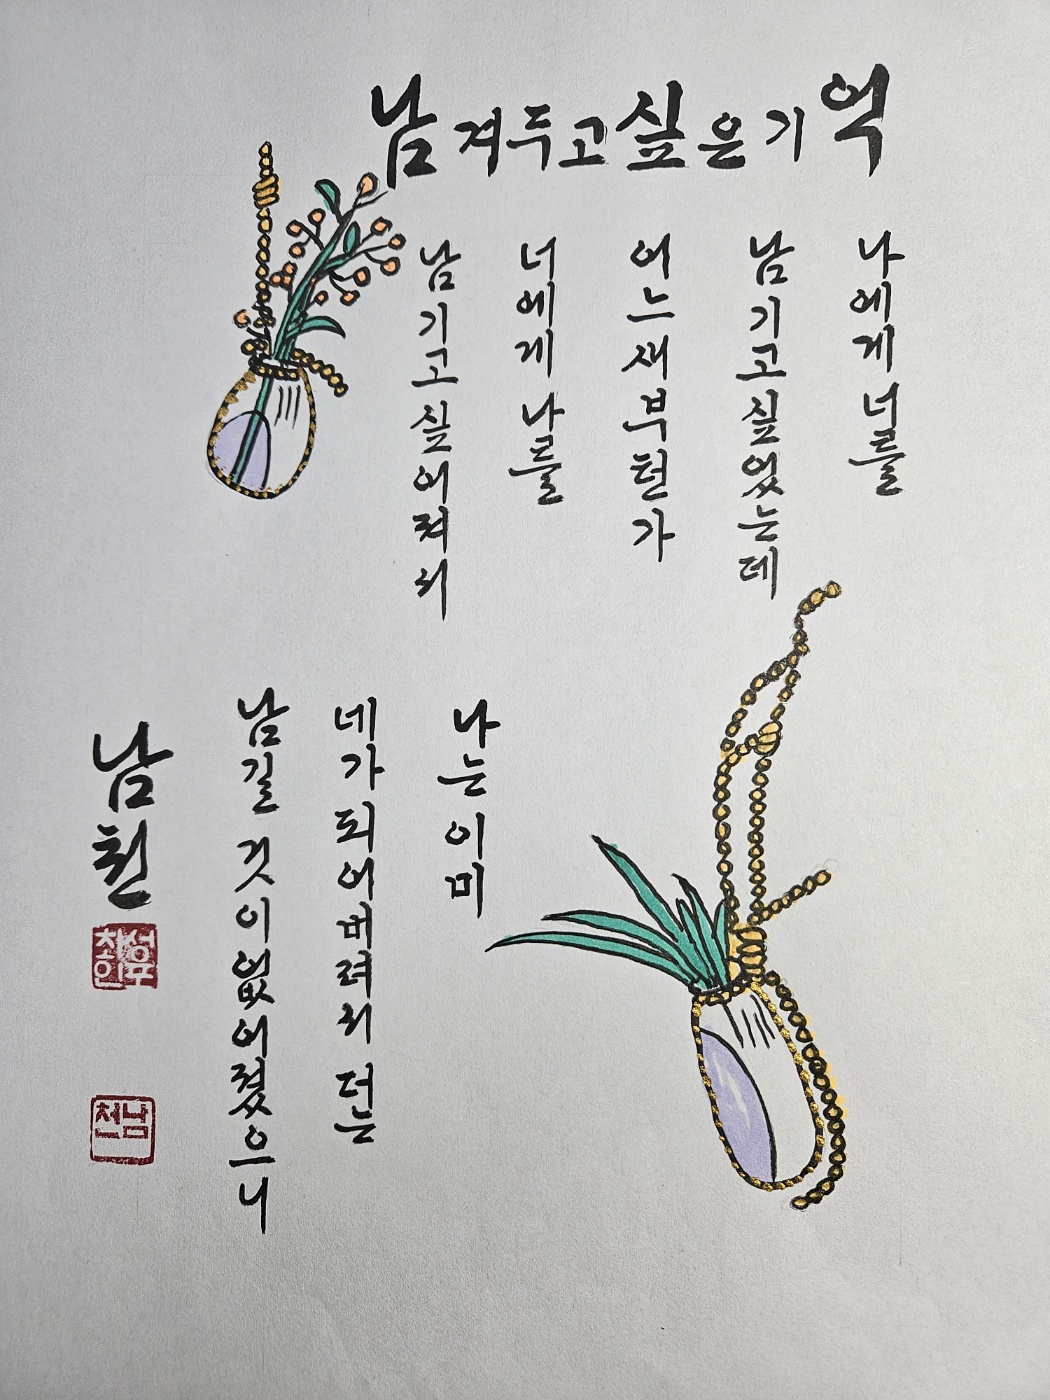 남겨두고싶은기억
나에게 너를
남기고싶었는데
어느새부턴가
너에게 나를
남기고싶어져서
나는 이미
네가되어버려서 더는
남길 것이없어졌으니
남천
남천